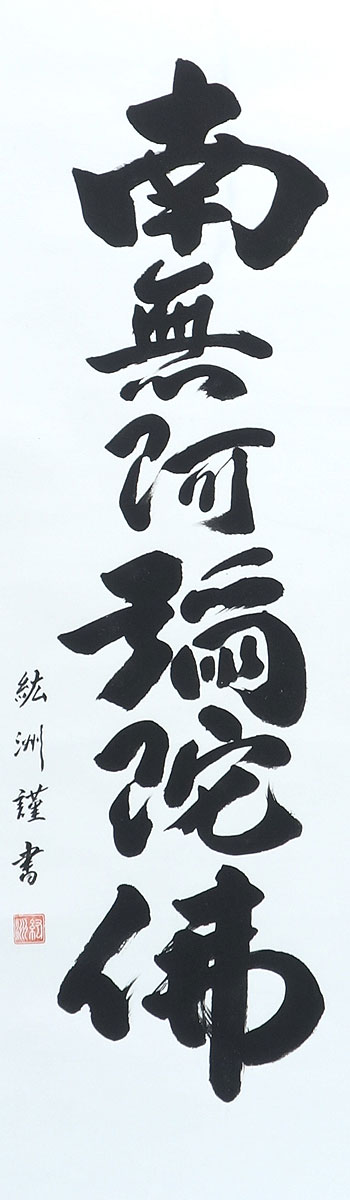 南無阿弥陀佛
紘洲謹書